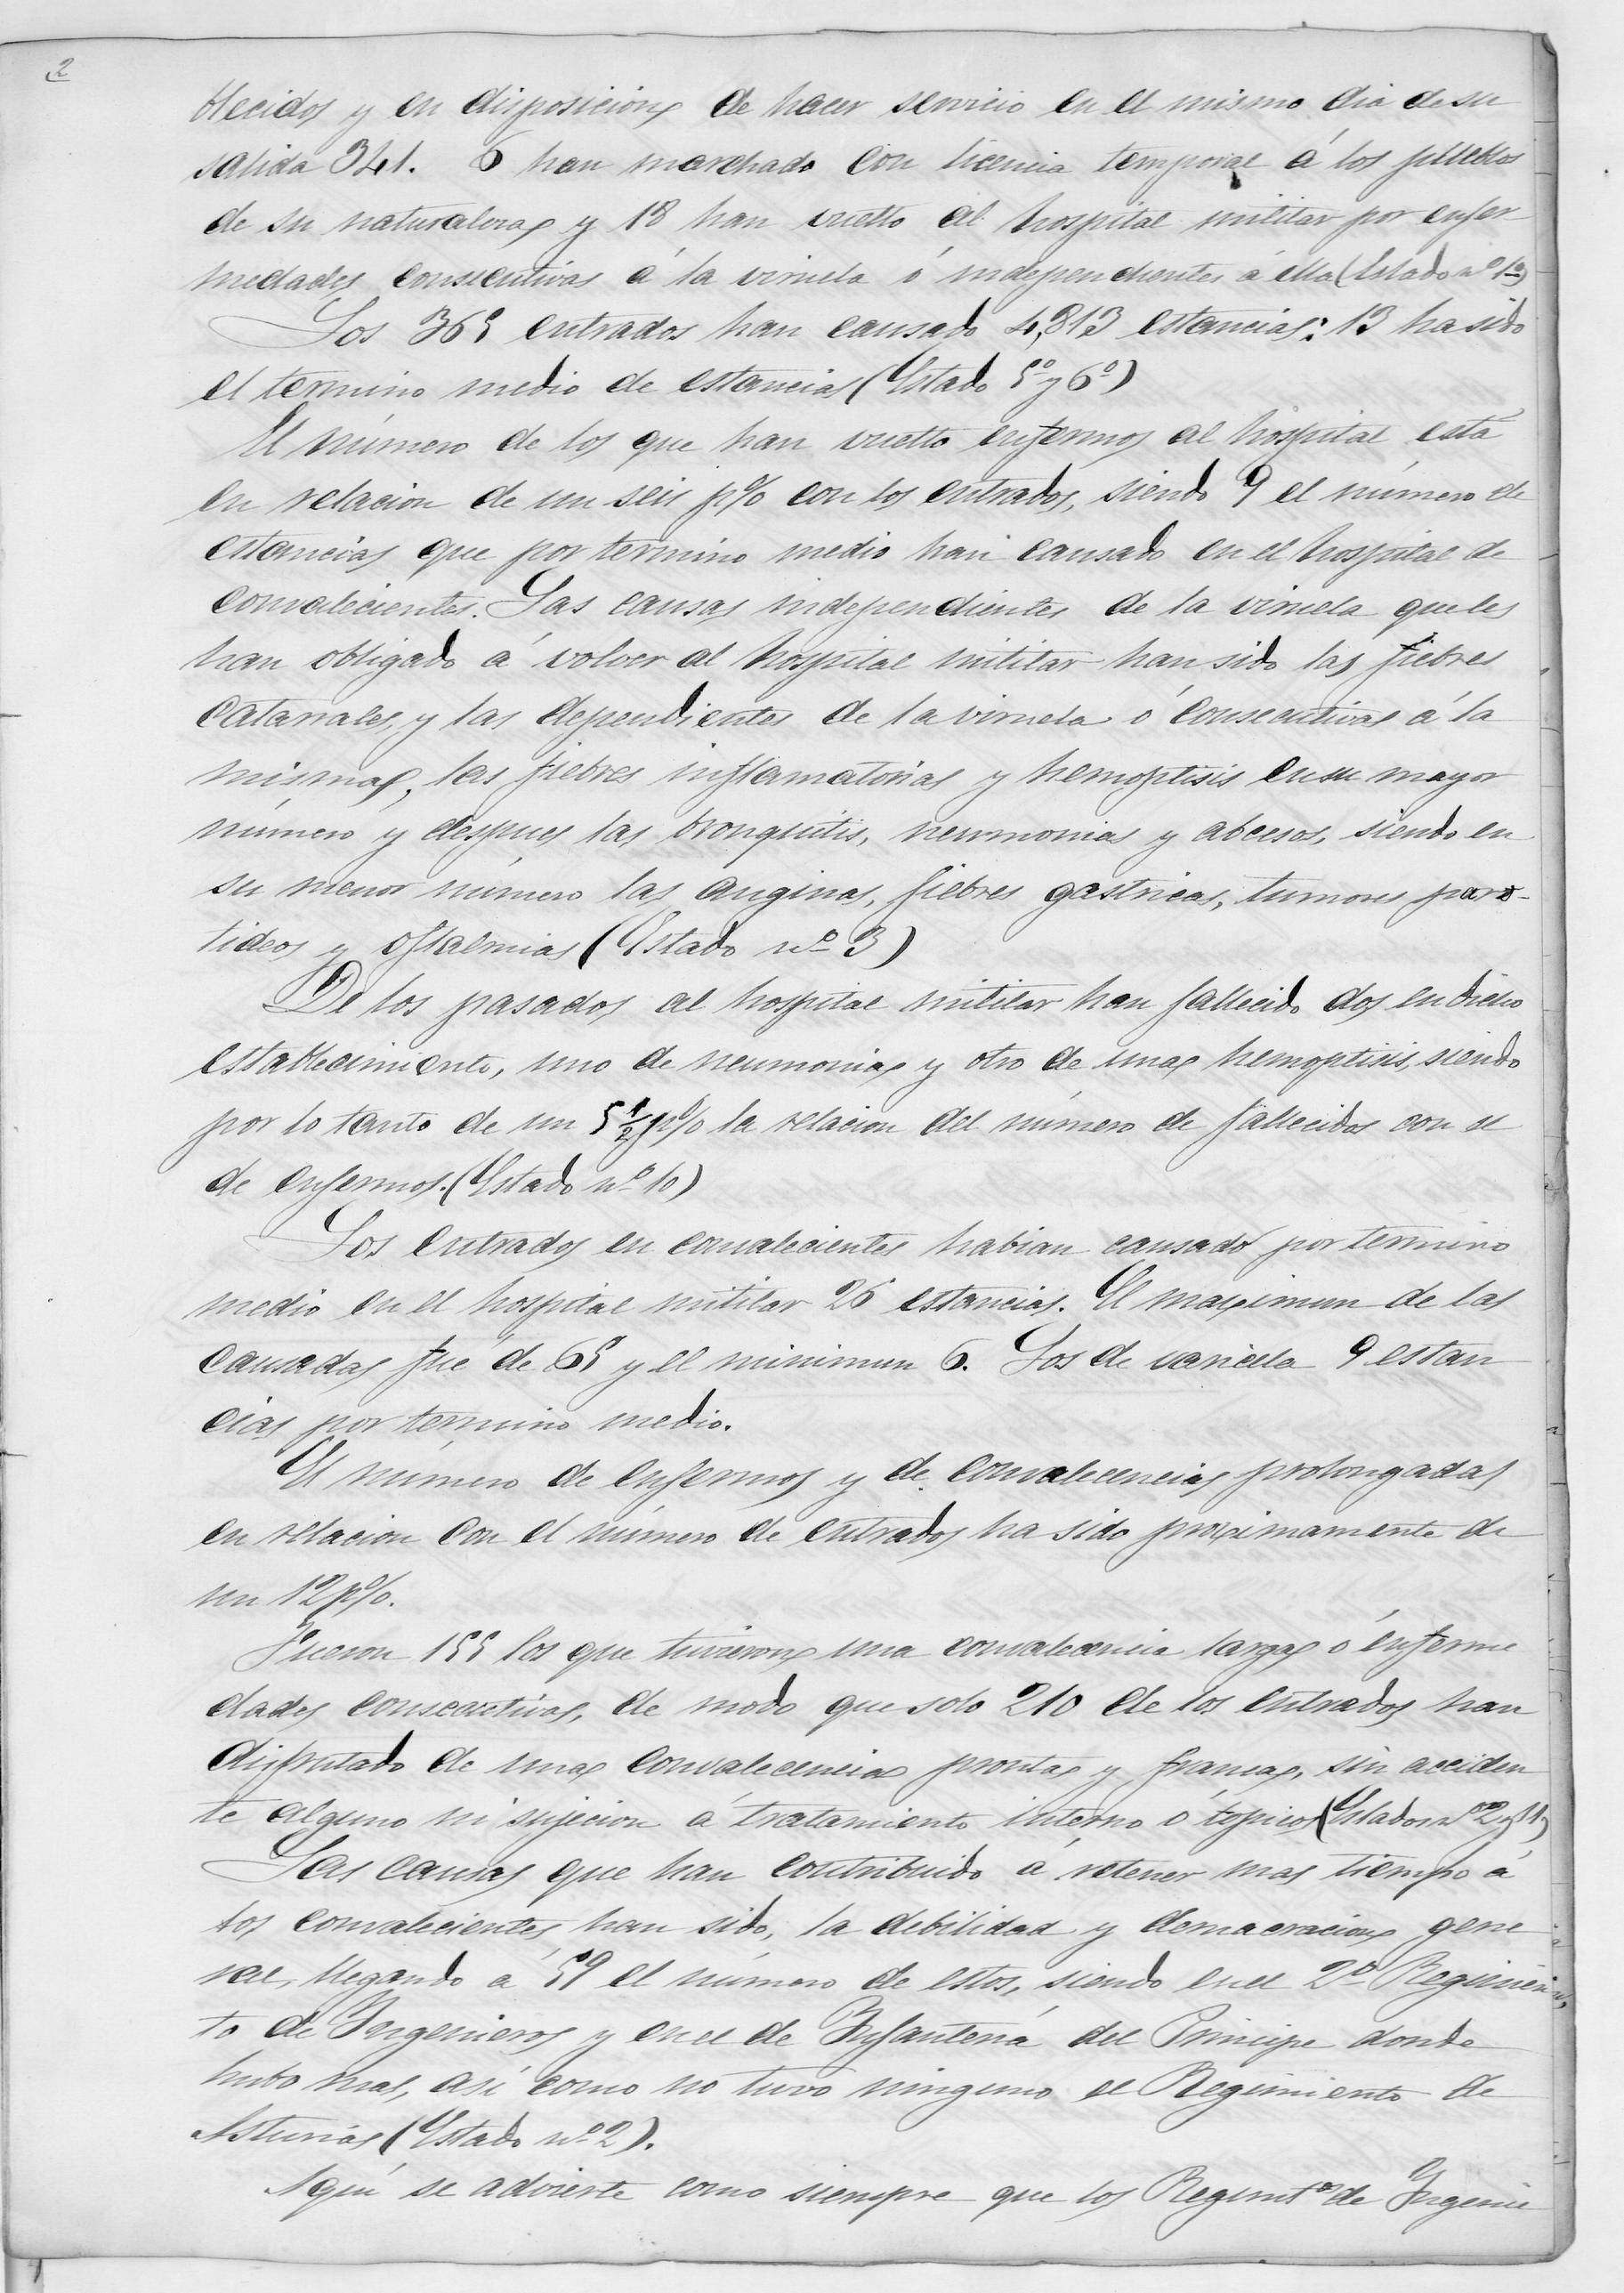 2
blecidos y en disposicion de hacer servicio en el mismo dia de su
salida 341. 6 han marchado con licencia temporal á los pueblos
de su naturaleza y 18 han vuelto al hospital militar por enfer
medades consecutivas á la viruela ó independientes á ella (Estado nº 1º)
Los 365 entrados han causado 4,813 estancias: 13 ha sido
el termino medio de estancias (Estado 5º y 6º)
El número de los que han vuelto enfermos al hospital está
en relacion de un seis p% con los entrados, siendo 9 el número de
estancias que por termino medio han causado en el hospital de
convalecientes. Las causas independientes de la viruela que les
han obligado á volver al hospital militar han sido las fiebres
catarrales, y las dependientes de la viruela ó consecutivas á la
misma, las fiebres inflamatorias y hemoptisis en su mayor
número y despues las bronquitis, neumonias y abcesos, siendo en
su menor número las anginas, fiebres gastricas, tumores paro-
tideos y oftalmias (Estado nº 3)
De los pasados al hospital militar han fallecido dos en dicho
establecimiento, uno de neumonia y otro de una hemoptisis, siendo
por lo tanto de un 5 1/2 p% la relacion del número de fallecidos con el
de enfermos. (Estado nº 10)
Los entrados en convalecientes habian causado por termino
medio en el hospital militar 26 estancias. El maximun de las
causadas fué de 65 y el minimun 6. Los de varicela 9 estan
cias por término medio.
El número de enfermos y de convalecencias prolongadas
en relacion con el número de entrados ha sido proximamente de
un 12 p%.
Fueron 155 los que tuvieron una convalecencia larga ó enferme
dades consecutivas, de modo que solo 210 de los entrados han
disfrutado de una convalecencia pronta y franca, sin acciden
te alguno ni sujecion á tratamiento interno ó topico (Estados nº 2 y 11)
Las causas que han contribuido á retener mas tiempo á
los convalecientes han sido, la debilidad y demacracion gene
ral, llegando á 59 el número de estos, siendo en el 2º Regimien
to de Ingenieros y en el de Infantería del Principe donde
hubo mas, así como no tuvo ninguno el Regimiento de
Asturias (Estado nº 2).
Aquí se advierte como siempre que los Regimtos de Ingenie